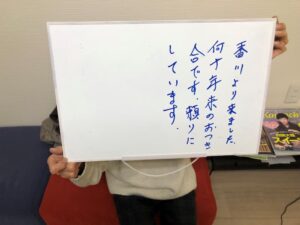 香川より来ました。
何十年来のおつき
合です。頼りに
しています。